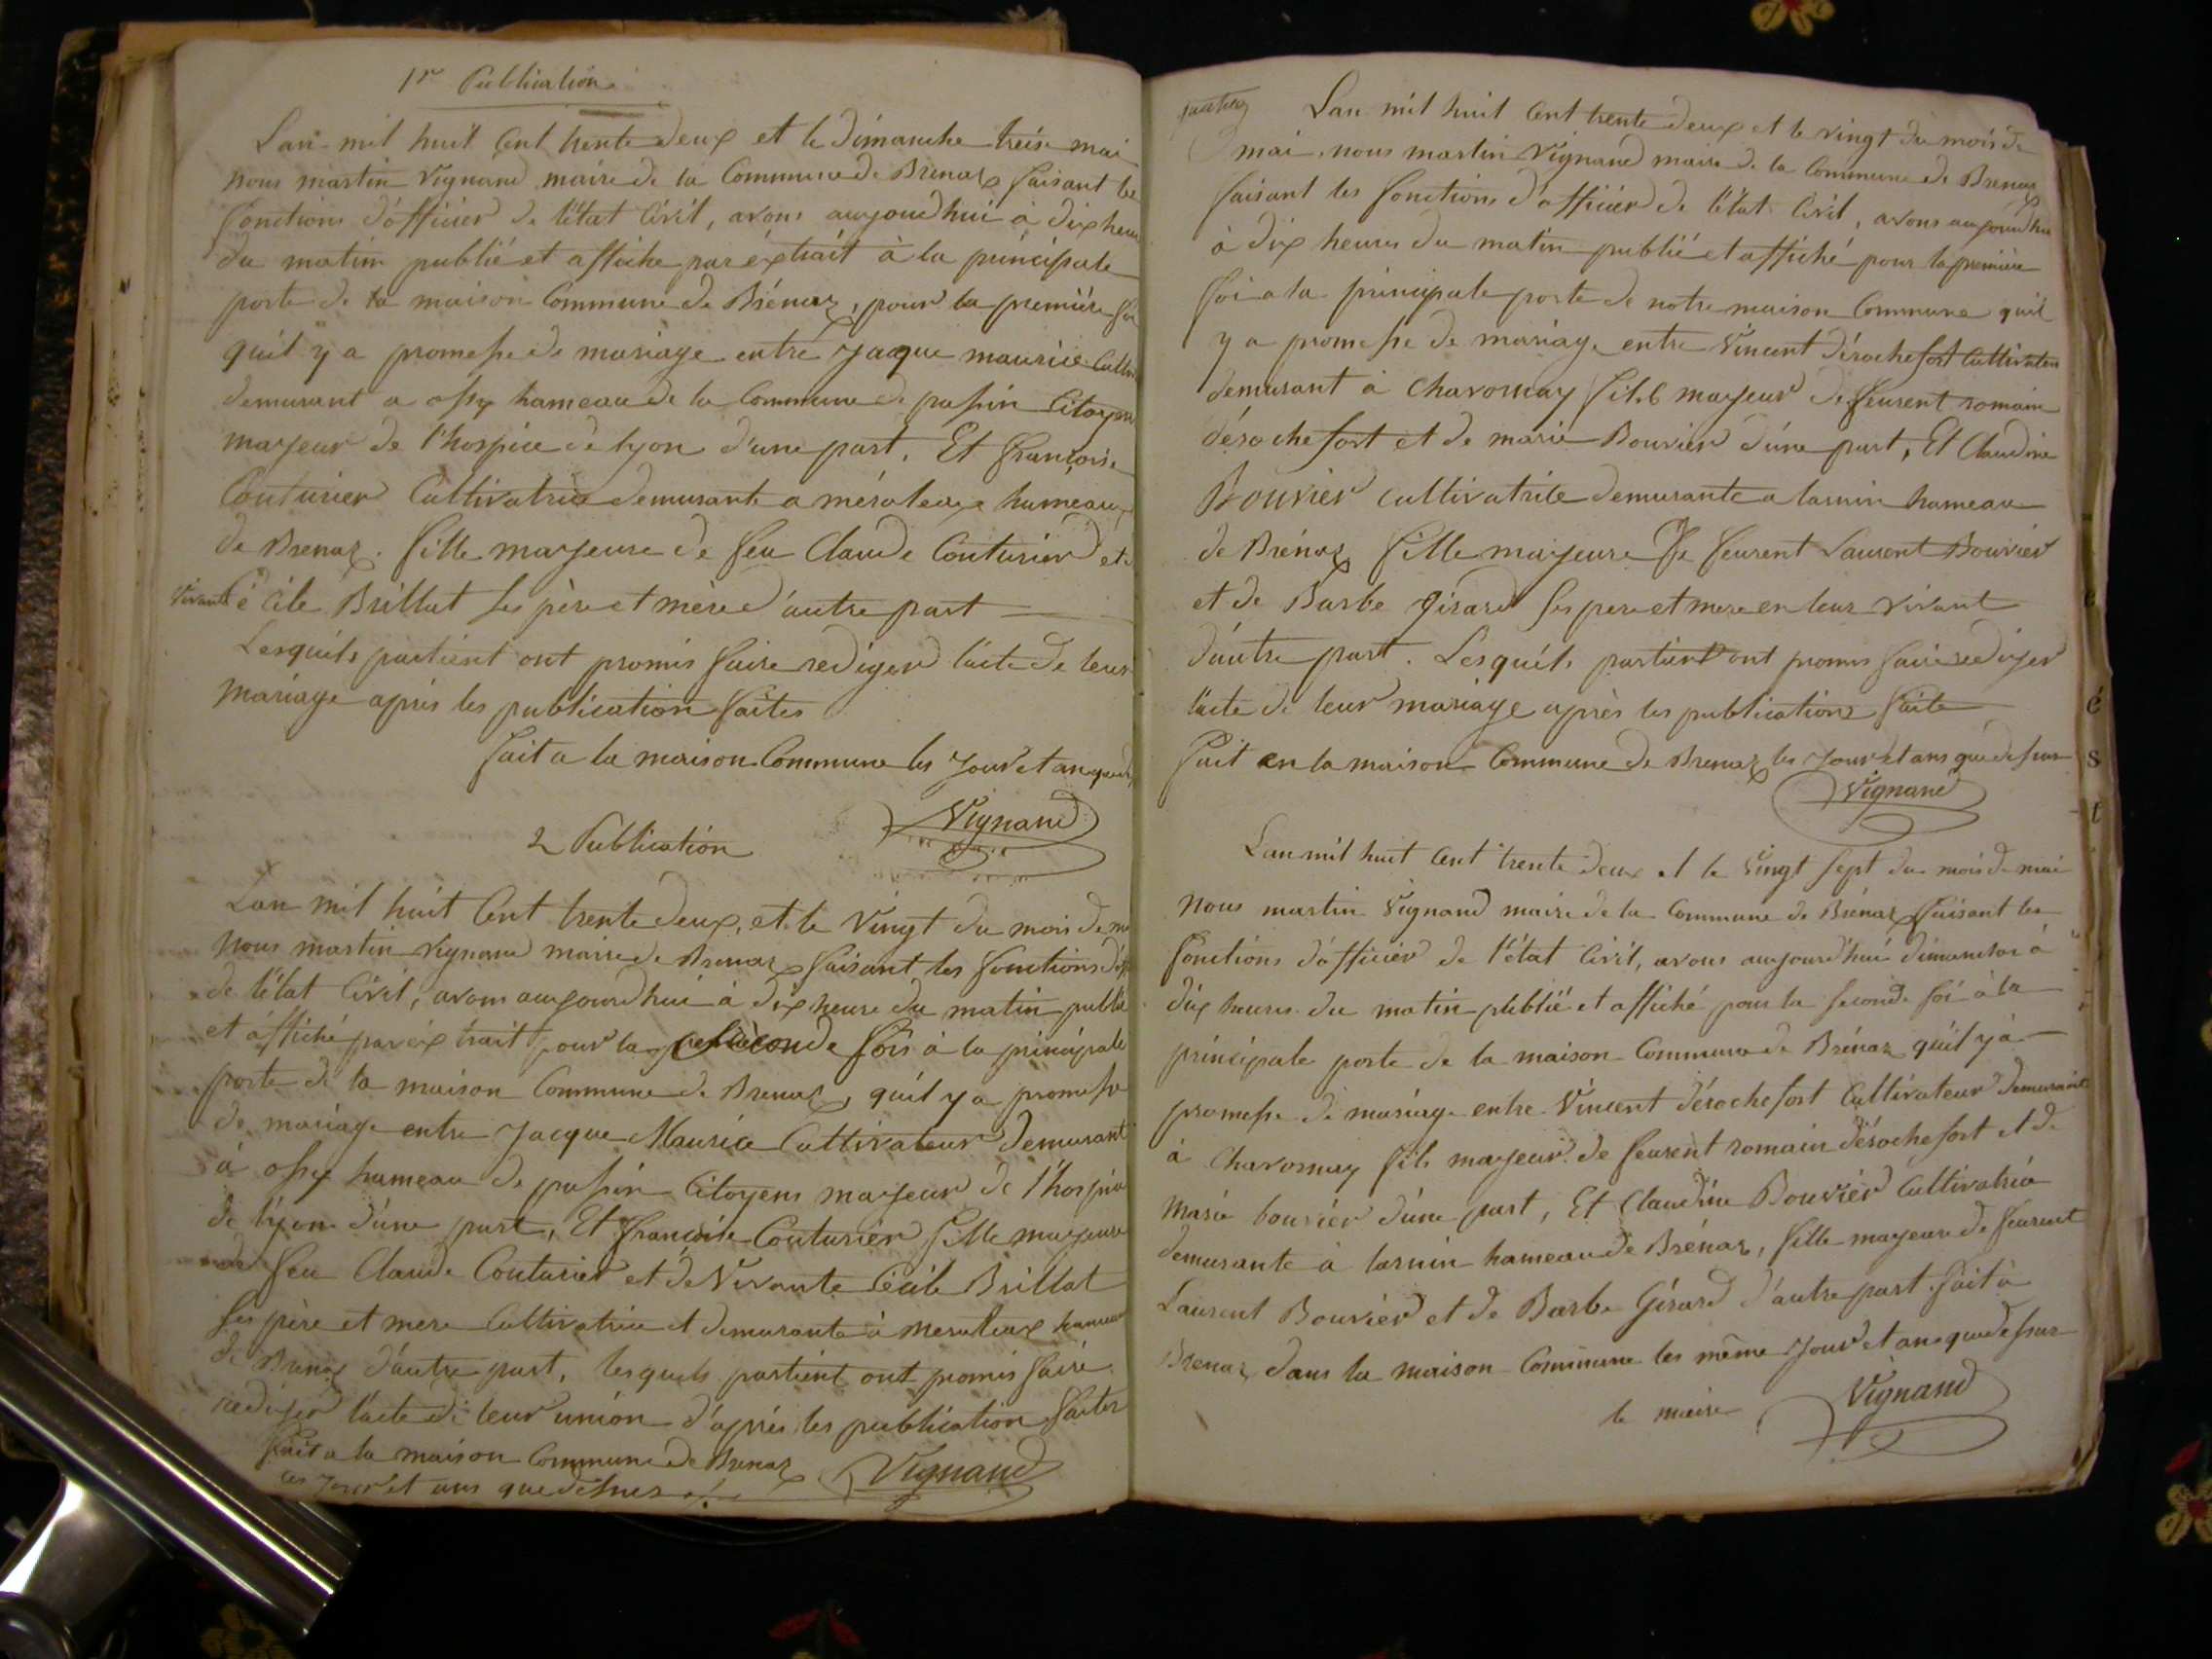 1re Publication
Lan mil huit Cent trente deux et le dimanche treise mai
nous martin Vignand maire de la Commune de Brenaz faisant les
fonctions d'officier de l'état Civil, avons aujourdhui à dix heures
du matin publié et affiche par éxtrait à la principale
porte de la maison Commune de Brénaz, pour la première foi
quil y a promesse de mariage entre Jaque maurice
demurant a ossy hameau de la Commune de passin Citoyens
mayeur de l'hospice de lyon d'une part, Et françoise
Couturier Cultivatrice demurante a méraleax hameau
de Brenaz. fille mayeure de feu Claude Couturier et
vivante Cécile Brillat ses père et mère d'autre part
Lesquels partient ont promis faire rediger l'acte de leur
mariage après les publication faites
fait a la maison Commune les jour et an que
Vignand
2 Publication
Lan mil huit Cent trente deux, et le Vingt du mois de
nous martin Vignand maire de Brenaz faisant les fonctions
de l'état Civil, avons aujourdhui à dix heure du matin publié
et affiché par éxtrait pour la seconde fois à la principale
porte de la maison Commune de Brenaz, quil y a promesse
de mariage entre Jacque Maurice Cultivateur demurant
à ossy hameau de passin Citoyens mayeur de l'hospice
de lyon d'une part, Et françoise Couturier fille mayeure
de feu Claude Couturier et de Vivante Cécile Brillat
ses père et mere Cultivatrice et demurante à meraleax hameau
de Brenaz d'autre part, lesquels partient ont promis faire
rediger l'acte de leur union d'après les publication faites
fait a la maison Commune de Brenaz
les jour et ans que dessus
Vignand
Lan mil huit Cent trente deux et le vingt du mois de
mai, nous martin Vignand maire de la Commune de Brenaz
faisant les fonctions d'officier de l'état Civil, avons aujourdhui
à dix heures du matin publié et affiché pour la première
foi a la principale porte de notre maison Commune quil
y a promesse de mariage entre Vincent dérochefort Cultivateur
demurant à Charosnay fils mayeur de feurent romain
dérochefort et de marie Bouvier d'une part, Et Claudine
Bouvier cultivatrice demurante a larnin hameau
de Brénaz fille mayeure de feurent Laurent Bouvier
et de Barbe Girard ses pere et mere en leur vivant
d'autre part. Lesquéls partient ont promis faire rediger
l'acte de leur mariage après les publications faite
fait en la maison Commune de Brenaz les jour et ans que dessus
Vignand
Lan mil huit Cent trente deux et le Vingt sept du mois de mai
nous martin Vignand maire de la Commune de Brénaz faisant les
fonctions d'officier de l'état Civil, avons aujourd'hui dimanche à
dix heures du matin publié et affiché pour la seconde foi à la
principale porte de la maison Commune de Brénaz quil y a
promesse de mariage entre Vincent dérochefort Cultivateur demurant
à Charosnay fils mayeur de feurent romain dérochefort et de
marie bouvier d'une part, Et Claudine Bouvier Cultivatrice
demurante à larnin hameau de Brénaz, fille mayeure de feurent
Laurent Bouvier et de Barbe Gérard d'autre part. fait à
Brenaz dans la maison Commune les même jour et an que dessus
le maire
Vignand
é
s
t